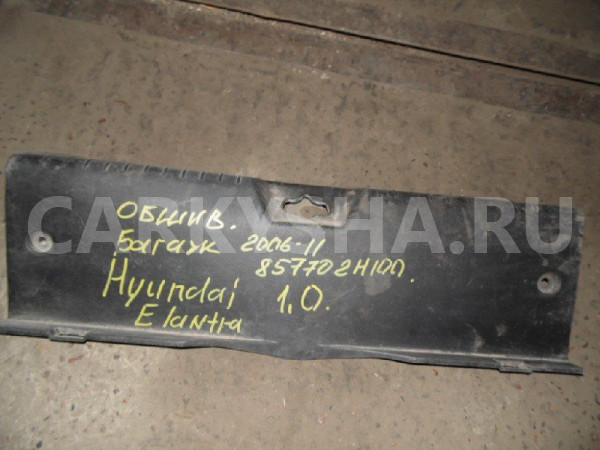 ОБШИВ.
Багаж 2006-11
857702H100.
Hyundai 1,0.
Elantra
CARKYSHA.RU